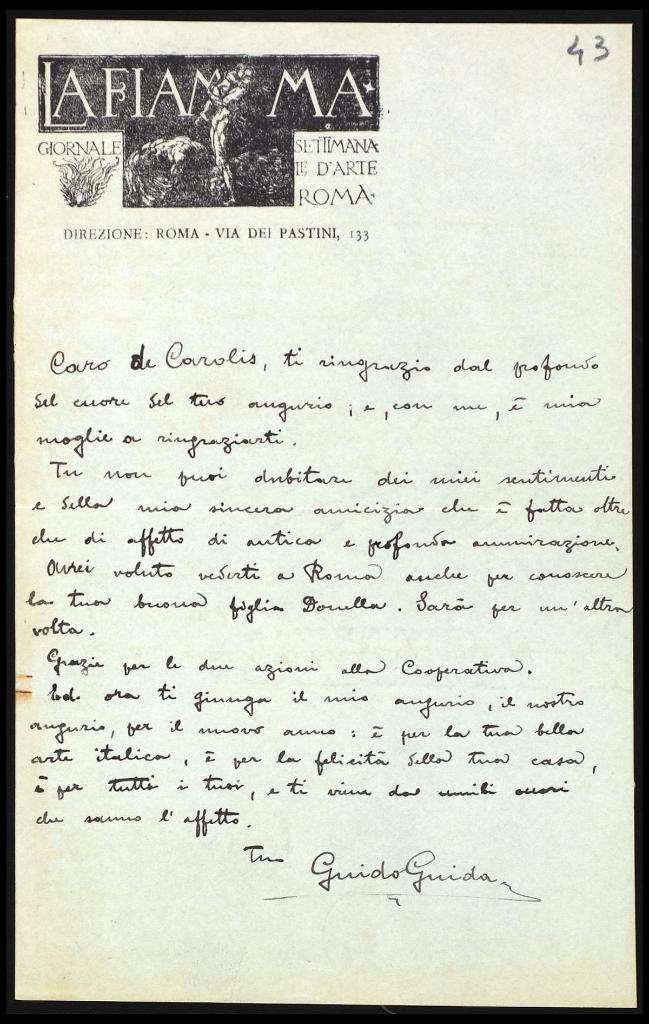 43
LA FIAMMA
GIORNALE SETTIMANA
LE D'ARTE
ROMA
DIREZIONE: ROMA - VIA DEI PASTINI, 133
Caro de Carolis, ti ringrazio dal profondo
del cuore del tuo augurio; e, con me, è mia
moglie a ringraziarti.
Tu non puoi dubitare dei miei sentimenti
e della mia sincera amicizia che è fatta oltre
che di affetto di antica e profonda ammirazione.
Avrei voluto vederti a Roma anche per conoscere
la tua buona figlia Donella. Sarà per un'altra
volta.
Grazie per le due azioni alla Cooperativa.
Ed ora ti giunga il mio augurio, il nostro
augurio, per il nuovo anno: è per la tua bella
arte italica, è per la felicità della tua casa,
è per tutti i tuoi, e ti viene da umili cuori
che sanno l'affetto.
Tuo Guido Guida